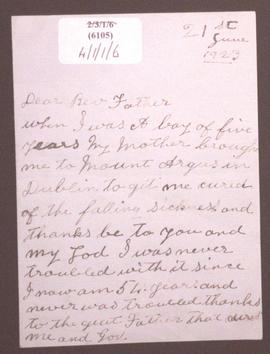 2/3/1/6
(6105)
4/1/1/6
21st
June
1923
Dear Rev Father
when I was A boy of five
years My Mother brough
me to Mount Argus in
Dublin to git me cured
of the falling sickness and
thanks be to you and
my God I was never
troubled with it since
I now am 54 years and
never was trouled thanks
to the great Father that cured
me and God.